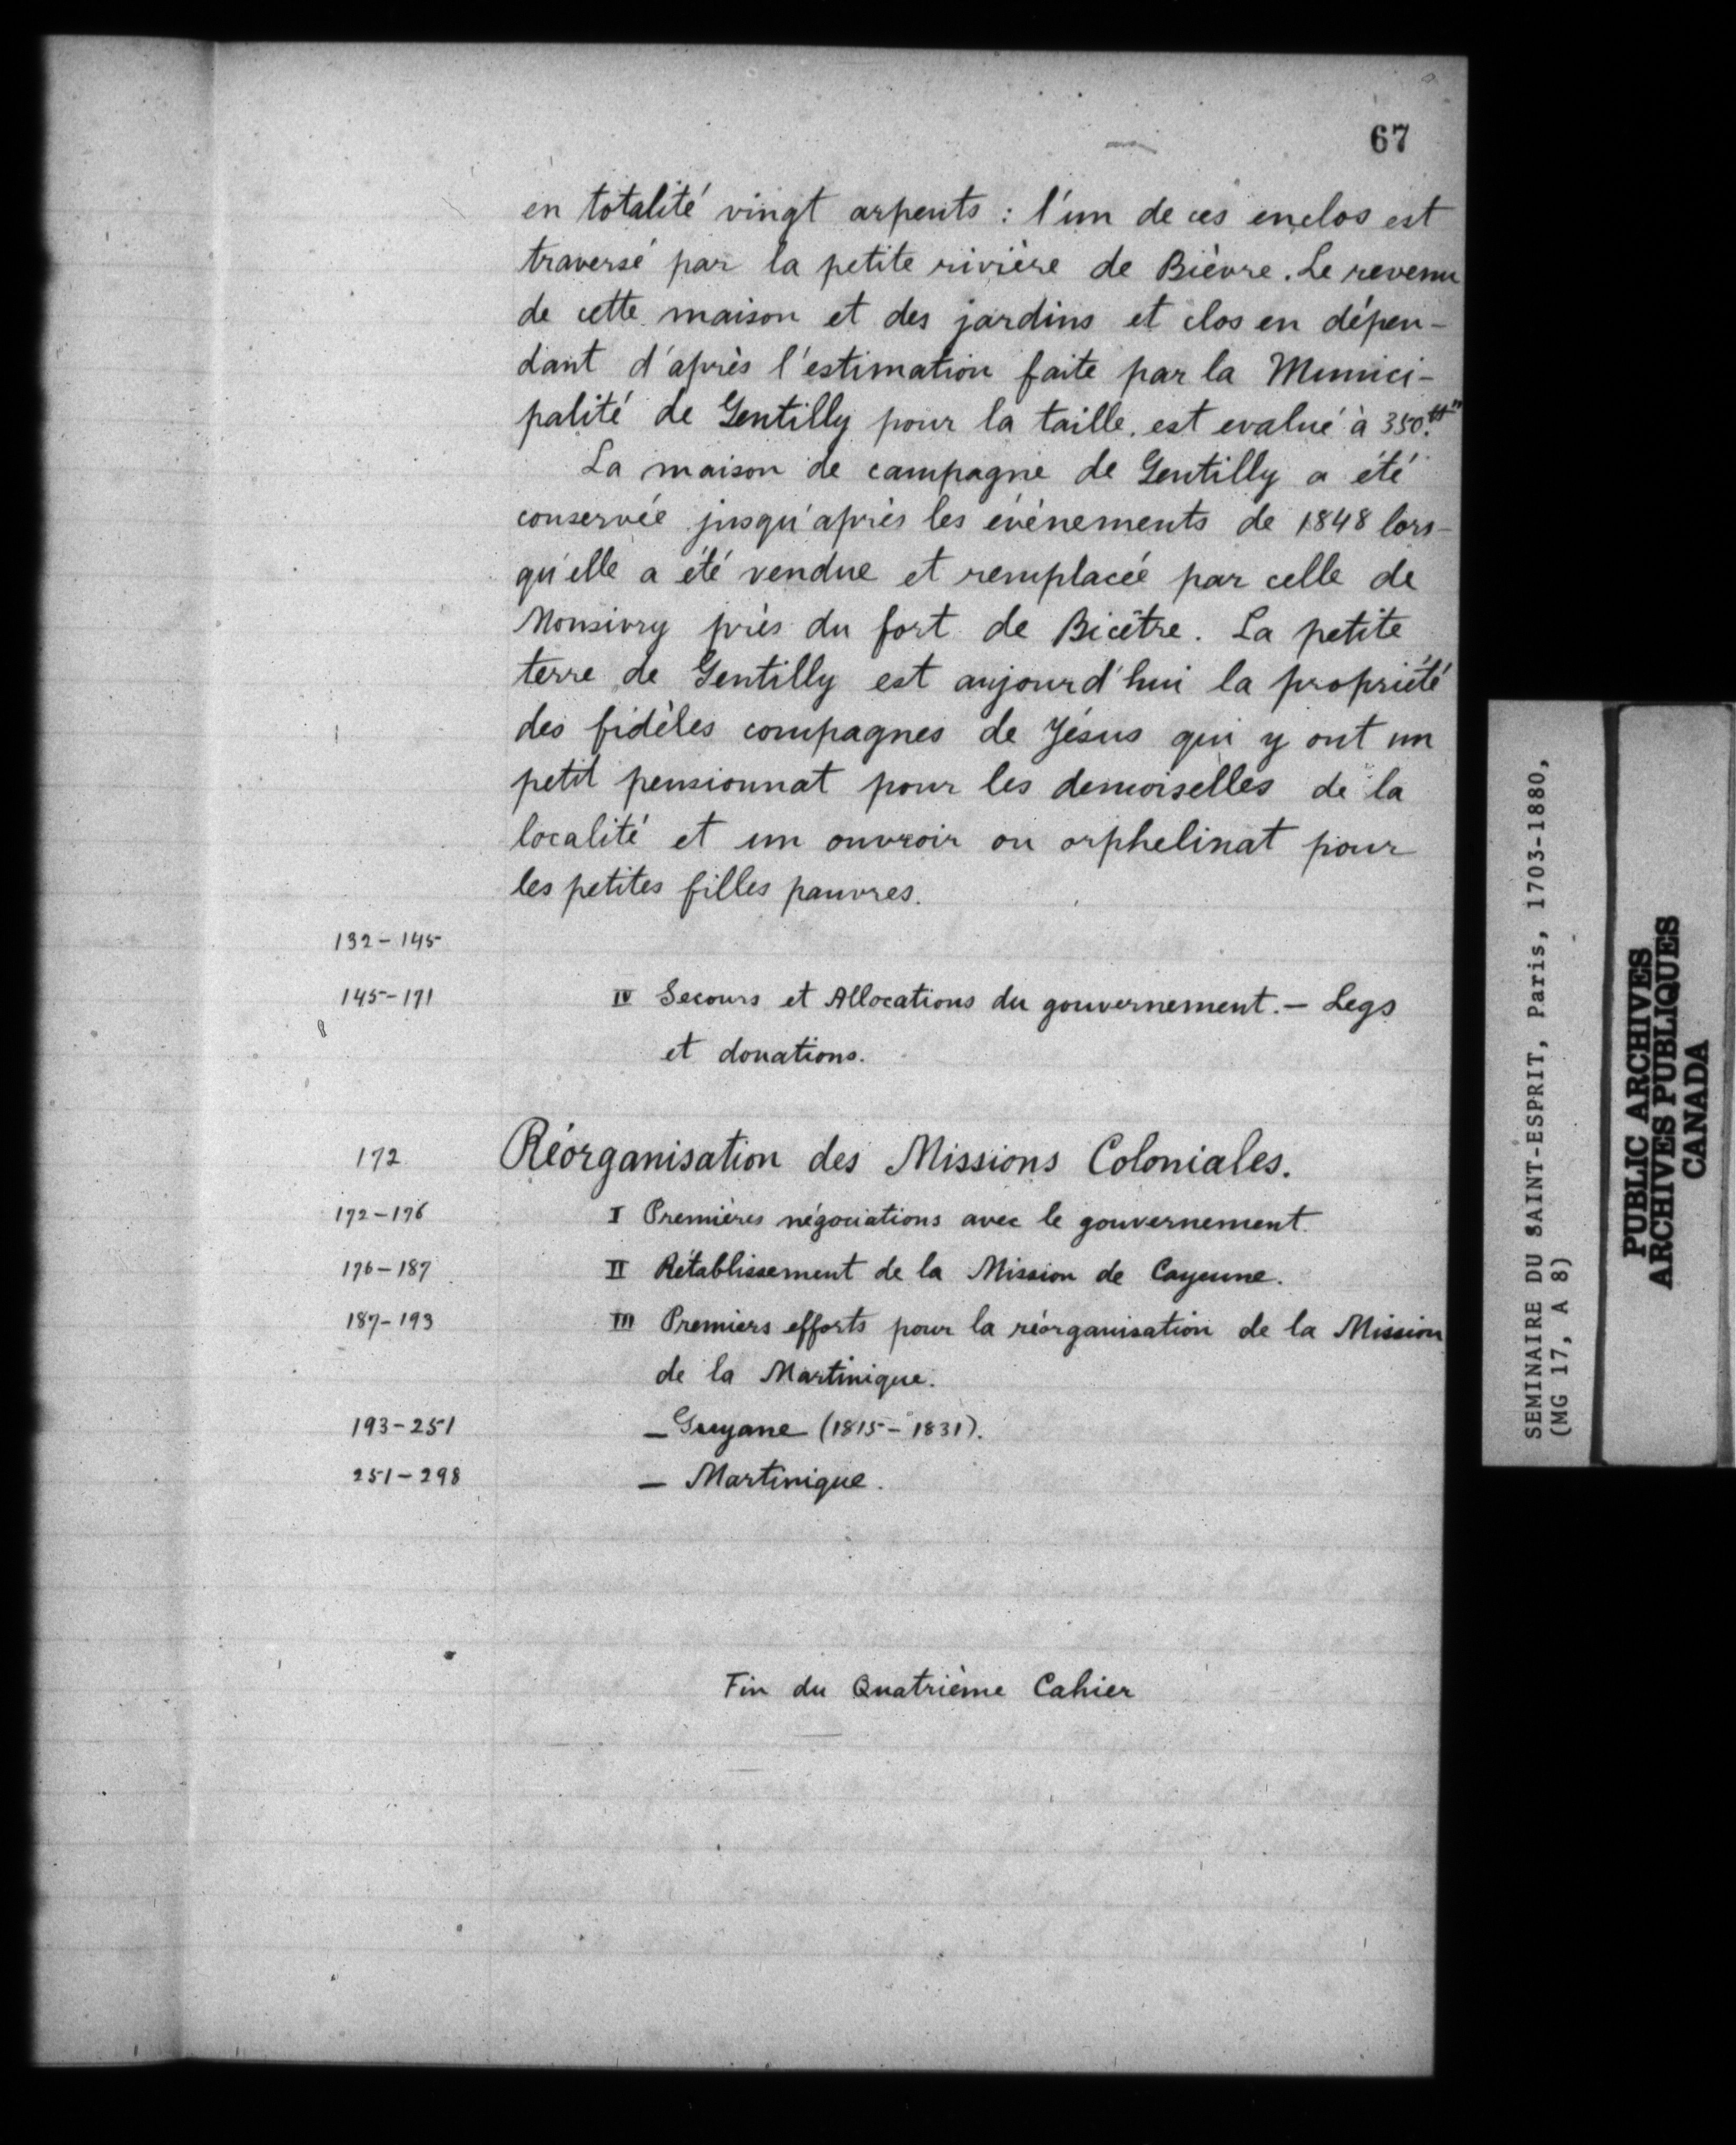 67
en totalité vingt arpents : l'un de ces enclos est
traversé par la petite rivière de Bièvre. Le revenu
de cette maison et des jardins et clos en dépen-
dant d'après l'estimation faite par la Munici-
palité de Gentilly pour la taille, est evalué à 350.tt"
La maison de campagne de Gentilly a été
conservée jusqu'après les évènements de 1848 lors-
qu'elle a été vendue et remplacée par celle de
Monsivry près du fort de Bicêtre. La petite
terre de Gentilly est aujourd'hui la propriété
des fidèles compagnes de Jésus qui y ont un
petit pensionnat pour les demoiselles de la
localité et un ouvroir ou orphelinat pour
les petites filles pauvres.
132-145
145-171 IV Secours et Allocations du gouvernement. - Legs
et donations.
172 Réorganisation des Missions Coloniales.
172-176 I Premières négociations avec le gouvernement.
176-187 II Rétablissement de la Mission de Cayenne.
187-193 III Premiers efforts pour la réorganisation de la Mission
de la Martinique.
193-251 - Guyane (1815-1831).
251-298 - Martinique.
Fin du Quatrième Cahier
SEMINAIRE DU SAINT-ESPRIT, Paris, 1703-1880,
(MG 17, A 8)
PUBLIC ARCHIVES
ARCHIVES PUBLIQUES
CANADA